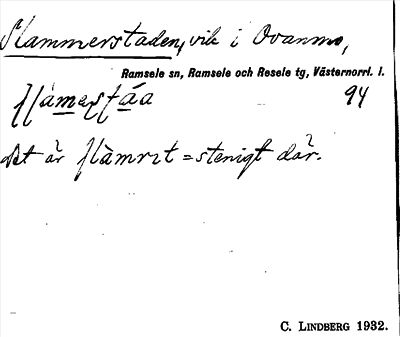 Slammerstaden, vik i Ovanmo,
Ramsele sn, Ramsele och Resele tg, Västernorrl. l.
94
det är = stenigt där.
C. LINDBERG 1932.